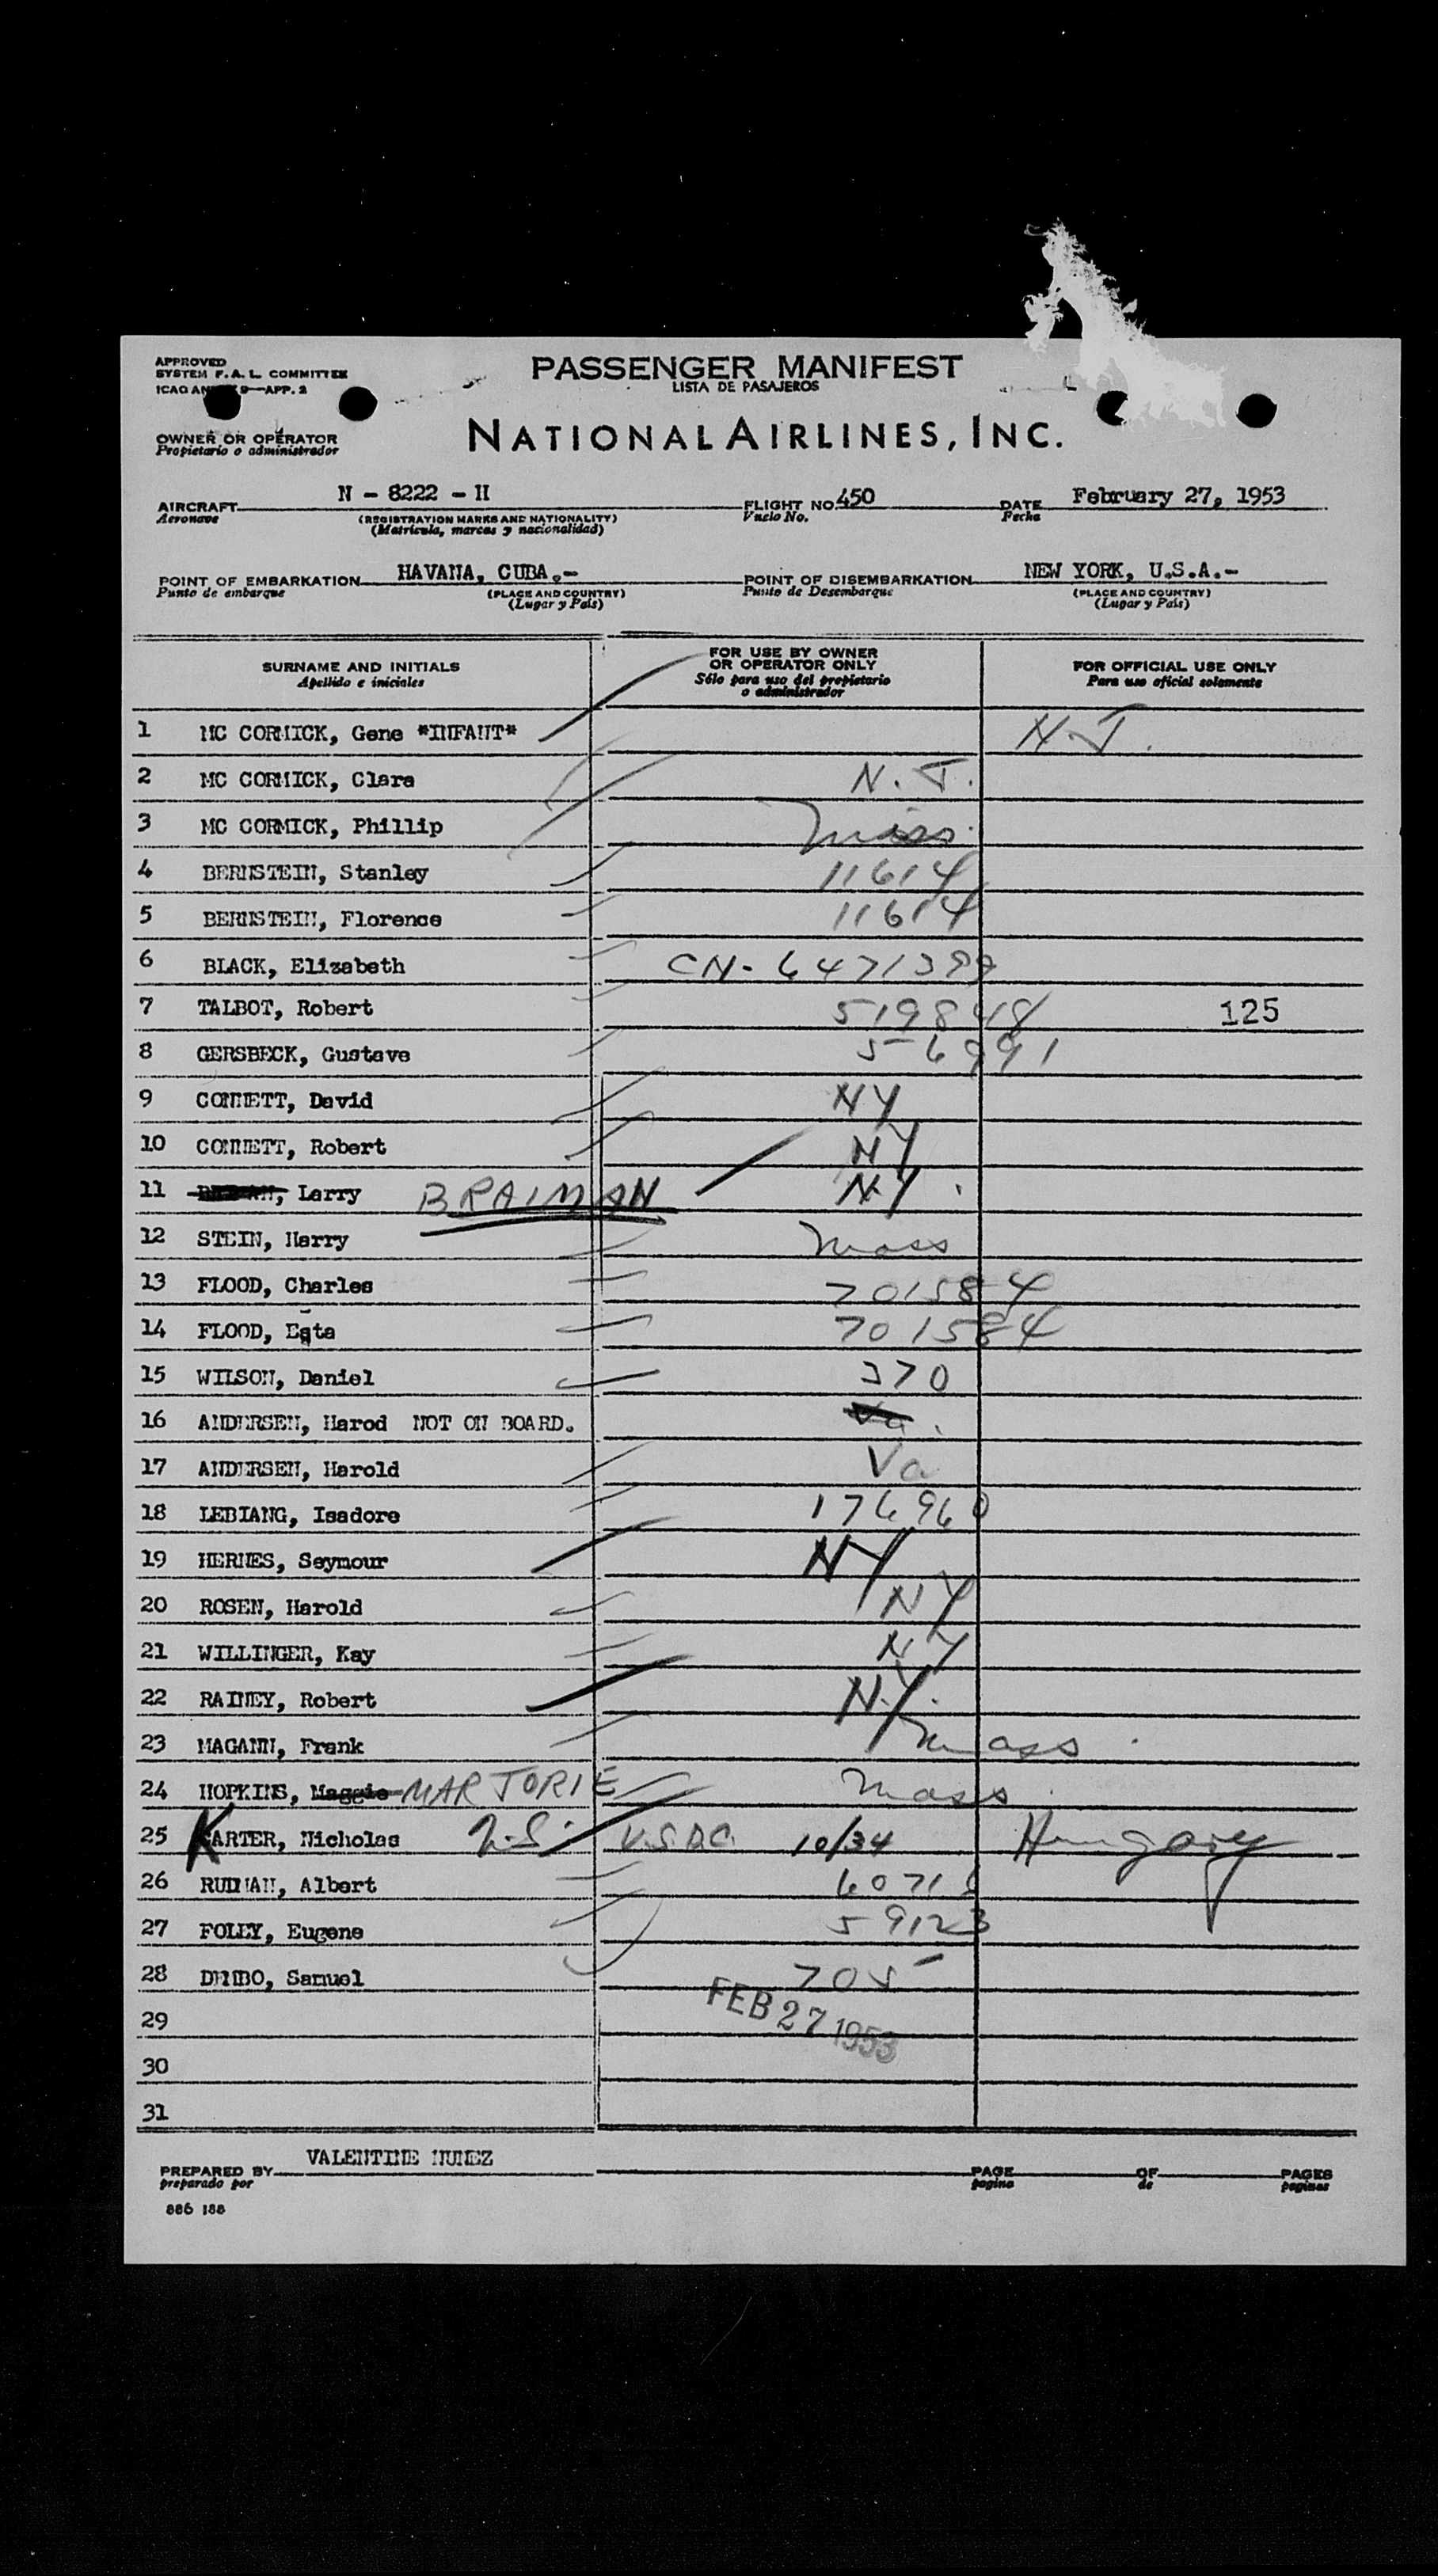 APPROVED
SYSTEM F.A.L. COMMITTEE
ICAO 9—APP. 2
PASSENGER MANIFEST
LISTA DE PASAJEROS
OWNER OR OPERATOR
Propietario o administrador
NATIONAL AIRLINES, INC.
AIRCRAFT N - 8222 - H FLIGHT NO. 450 DATE February 27, 1953
Aeronave (REGISTRATION MARKS AND NATIONALITY) Vuelo No. Fecha
(Matricula, marcas y nacionalidad)
POINT OF EMBARKATION HAVANA, CUBA.- POINT OF DISEMBARKATION NEW YORK, U.S.A.-
Punto de embarque (PLACE AND COUNTRY) Punto de Desembarque (PLACE AND COUNTRY)
(Lugar y País) (Lugar y País)
SURNAME AND INITIALS FOR USE BY OWNER OR OPERATOR ONLY FOR OFFICIAL USE ONLY
Apellido e iniciales Sólo para uso del propietario o administrador Para uso oficial solamente
1 MC CORMICK, Gene *INFANT* N.J.
2 MC CORMICK, Clara N.J.
3 MC CORMICK, Phillip Miss.
4 BERNSTEIN, Stanley 11614
5 BERNSTEIN, Florence 11614
6 BLACK, Elizabeth CN-6471399
7 TALBOT, Robert 519848 125
8 GERSBECK, Gustave 56991
9 CONNETT, David NY
10 CONNETT, Robert NY
11 Larry BRAIMAN NY.
12 STEIN, Harry Mass
13 FLOOD, Charles 701584
14 FLOOD, Esta 701584
15 WILSON, Daniel 370
16 ANDERSEN, Harod NOT ON BOARD. Va.
17 ANDERSEN, Harold Va
18 LEBIANG, Isadore 176960
19 HERNES, Seymour NY
20 ROSEN, Harold NY
21 WILLINGER, Kay NY
22 RAINEY, Robert N.Y.
23 MAGANN, Frank Mass.
24 HOPKINS, Maggie MARJORIE Mass.
25 KARTER, Nicholas U.S.D.C. 10/34 Hungary
26 RUDMAN, Albert
27 FOLEY, Eugene 59123
28 Samuel 705
FEB 27 1953
29
30
31
PREPARED BY VALENTINE NUNEZ PAGE OF PAGES
preparado por pagina de paginas
886 188